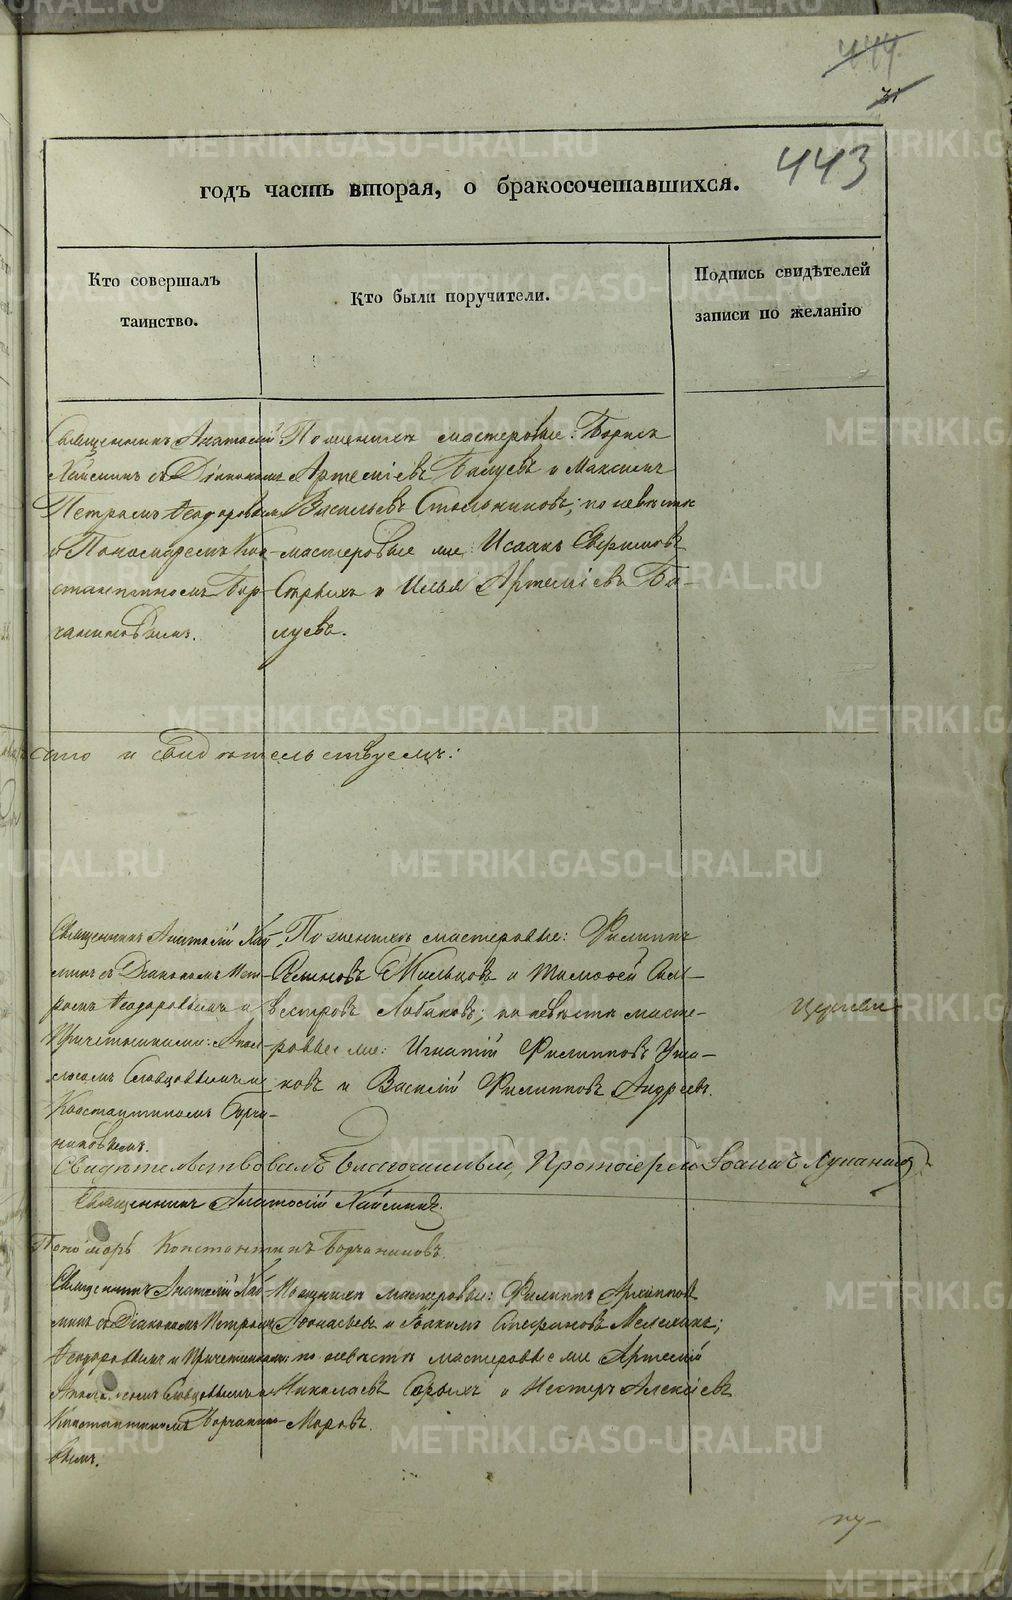 444
31
443
годъ часть вторая, о бракосочетавшихся.
Кто совершалъ
таинство.
Кто были поручители.
Подпись свидѣтелей
записи по желанію
Священникъ Анатолій
Хайминъ съ Діакономъ
Петромъ Ѳеодоровымъ
и Пономаремъ Кон-
стантиномъ Бор-
чаниновымъ.
По женихѣ мастеровые: Борисъ
Артеміевъ Балуевъ и Максимъ
Васильевъ Стольниковъ; по невѣстѣ
мастеровые же: Исаакъ Ефимовъ
Сѣрыхъ и Илья Артеміевъ Ба-
луевъ.
что и свидѣтельствуемъ:
Священникъ Анатолій Хай-
минъ съ Діакономъ Пет-
ромъ Ѳеодоровымъ и
Причетниками:
Словцовымъ и
Константиномъ Борча-
ниновымъ.
По женихѣ мастеровые: Филиппъ
Мильковъ и Тимоѳей Сил-
вестровъ Лобановъ; по невѣстѣ масте-
ровые же: Игнатій Филипповъ Уша-
ковъ и Василій Филипповъ Андреевъ.
Церкви
Свидѣтельствовалъ Благочинный, Протоіерей Іоаннъ
Священникъ Анатолій Хайминъ.
Пономарь Константинъ Борчаниновъ.
Священникъ Анатолій Хай-
минъ съ Діакономъ Петромъ
Ѳеодоровымъ и Причетниками:
Словцовымъ и
Константиномъ Борчанино-
вымъ.
По женихѣ мастеровые: Филиппъ Архиповъ
и Іоакимъ Стефановъ Мелехинъ;
по невѣстѣ мастеровые же Артемій
Николаевъ Сѣрыхъ и Нестеръ Алексіевъ
Маровъ.
METRIKI.GASO-URAL.RU